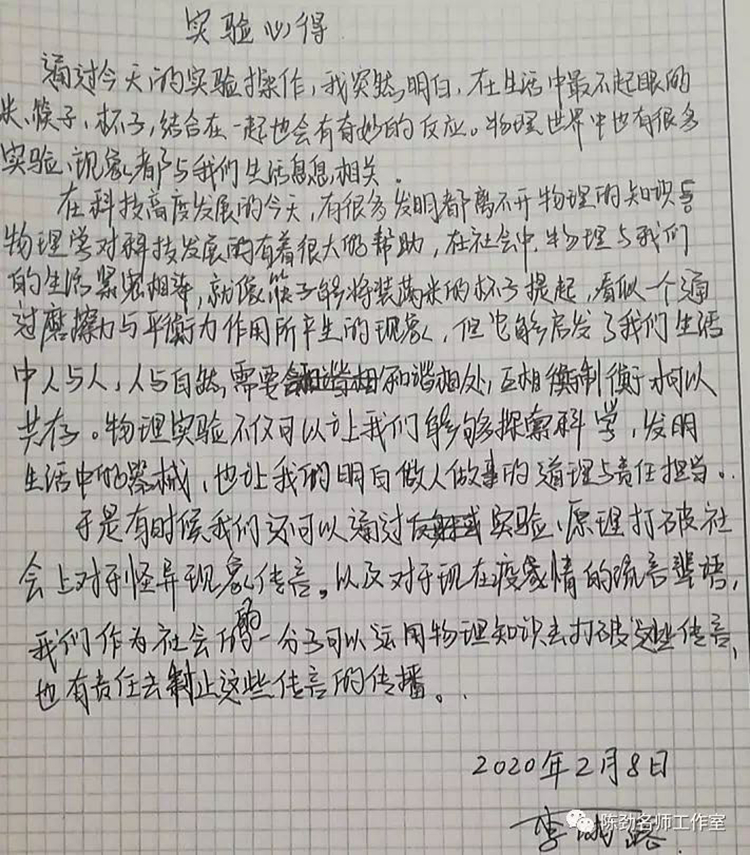 实验心得
通过今天的实验操作,我突然明白,在生活中最不起眼的
米、筷子、杯子,结合在一起也会有奇妙的反应。物理世界中也有很多
实验、现象都与我们生活息息相关。
在科技高度发展的今天,有很多发明都离不开物理的知识
物理学对科技发展的有着很大的帮助,在社会中,物理与我们
的生活紧密相连,就像筷子能将装满米的杯子提起,看似一个通
过磨擦力与平衡力作用所产生的现象,但它能启发了我们生活
中人与人,人与自然,需要和谐相处,互相制衡才可以
共存。物理实验不仅可以让我们能够探索科学,发明
生活中的器械,也让我们明白做人做事的道理与责任担当。
于是有时候我们还可以通过实验、原理打破社
会上对于怪异现象传言。以及对于现在疫情的流言蜚语,
我们作为社会的一分子可以运用物理知识去打破这些传言,
也有责任去制止这些传言的传播。
2020年2月8日
李
陈劲名师工作室